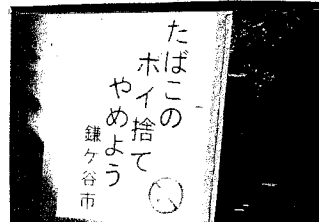 たばこの
ポイ捨て
やめよう
鎌ケ谷市